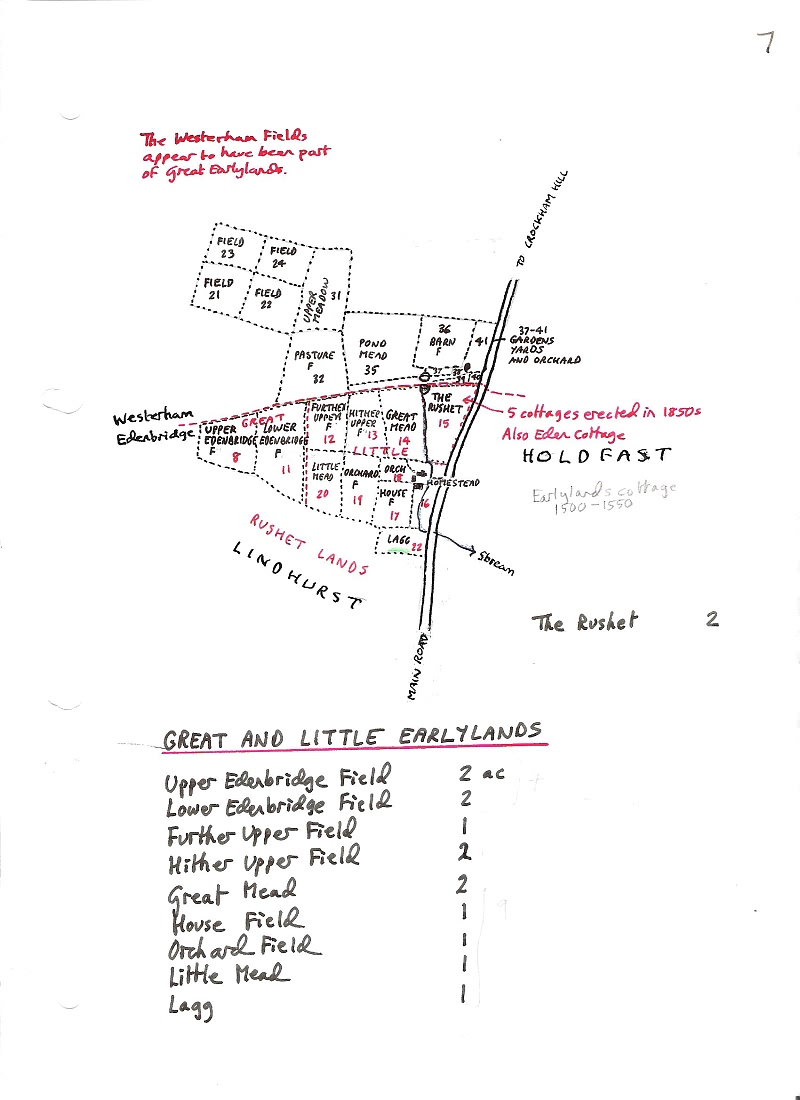 7
The Westerham Fields
appear to have been part
of Great Earlylands.
TO CROCKHAM HILL
FIELD
23
FIELD
24
FIELD
21
FIELD
22
UPPER
MEADOW
31
PASTURE
F
32
POND
MEAD
35
36
BARN
F
41
37-41
GARDENS
YARDS
AND ORCHARD
37
38
39
40
Westerham
Edenbridge
GREAT
UPPER
EDENBRIDGE
F
8
LOWER
EDENBRIDGE
F
11
FURTHER
UPPER
F
12
HITHER
UPPER
F 13
GREAT
MEAD
14
LITTLE
THE
RUSHET
15
5 cottages erected in 1850s
Also Eden Cottage
HOLDFAST
Earlylands cottage
1500-1550
LITTLE
MEAD
20
ORCHARD
F
19
ORCH
18
HOUSE
F
17
HOMESTEAD
16
LAGG
22
Stream
RUSHET LANDS
LINDHURST
MAIN ROAD
The Rushet 2
GREAT AND LITTLE EARLYLANDS
Upper Edenbridge Field 2 ac
Lower Edenbridge Field 2
Further Upper Field 1
Hither Upper Field 2
Great Mead 2
House Field 1
Orchard Field 1
Little Mead 1
Lagg 1